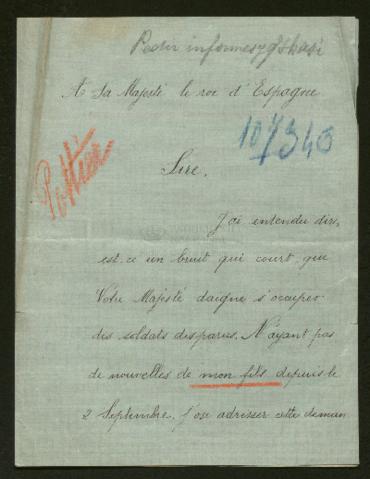 Pedir informes y
A Sa Majesté le roi d'Espagne
107343
Pottier
Sire,
J'ai entendu dire,
est-ce un bruit qui court, que
Votre Majesté daigne s'occuper
des soldats disparus. N'ayant pas
de nouvelles de mon fils depuis le
2 Septembre, j'ose adresser cette deman